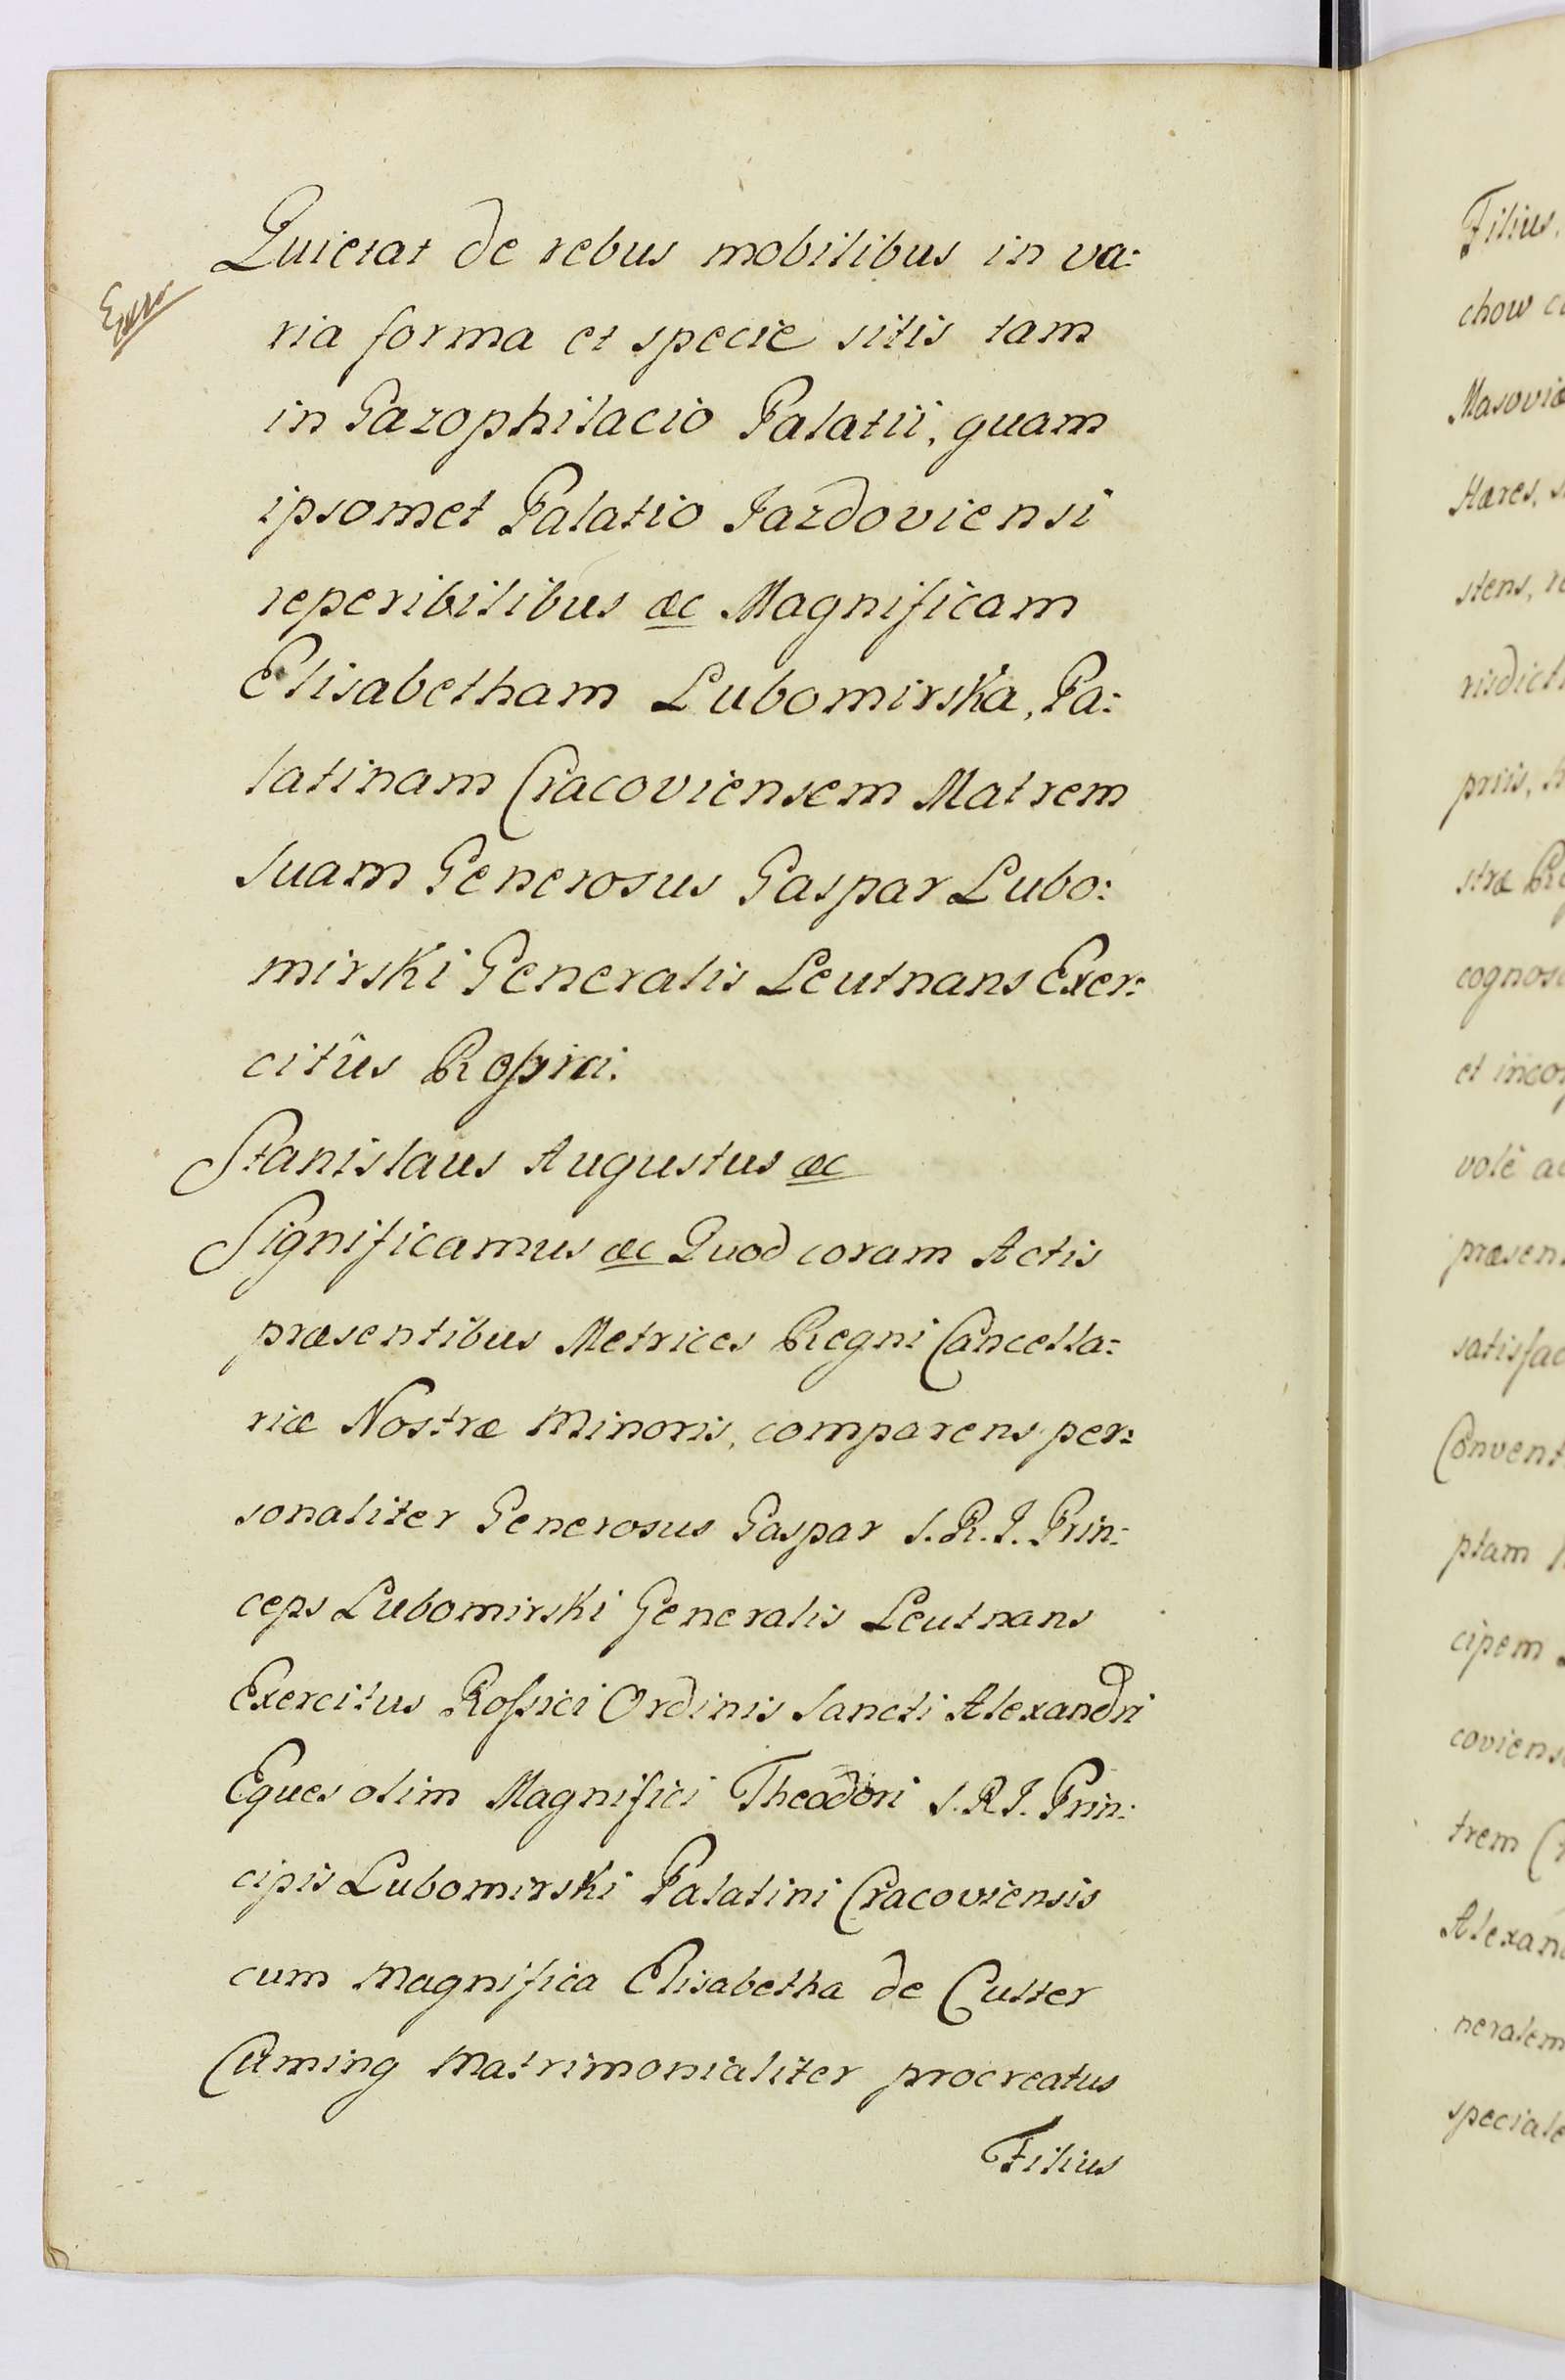 Quietat de rebus mobilibus in va:
ria forma et specie sitis tam
in Gazophilacio Palatii, quam
ipsomet Palatio Jazdoviensi
reperibilibus &c Magnificam
Elisabetham Lubomirska, Pa:
latinam Cracoviensem Matrem
suam Generosus Gaspar Lubo:
mirski Generalis Leutnans Exer:
citûs Rossici.
Stanislaus Augustus &c
Significamus &c Quod coram Actis
præsentibus Metrices Regni Cancella:
riæ Nostræ Minoris, comparens per:
sonaliter Generosus Gaspar S. R. I. Prin:
ceps Lubomirski Generalis Leutnans
Exercitus Rossici Ordinis Sancti Alexandri
Eques olim Magnifici Theodori S. R. I. Prin:
cipis Lubomirski Palatini Cracoviensis
cum Magnifica Elisabetha de Culler
Cuming Matrimonialiter procreatus
Filius
Filius
chow
Masoviæ
Hæres,
stens,
risdicti
priis,
stræ
cognosc
et incom
volê ac
præsen
satisfac
Convent
ptam
cipem
coviens
trem
Alexan
neralem
speciale